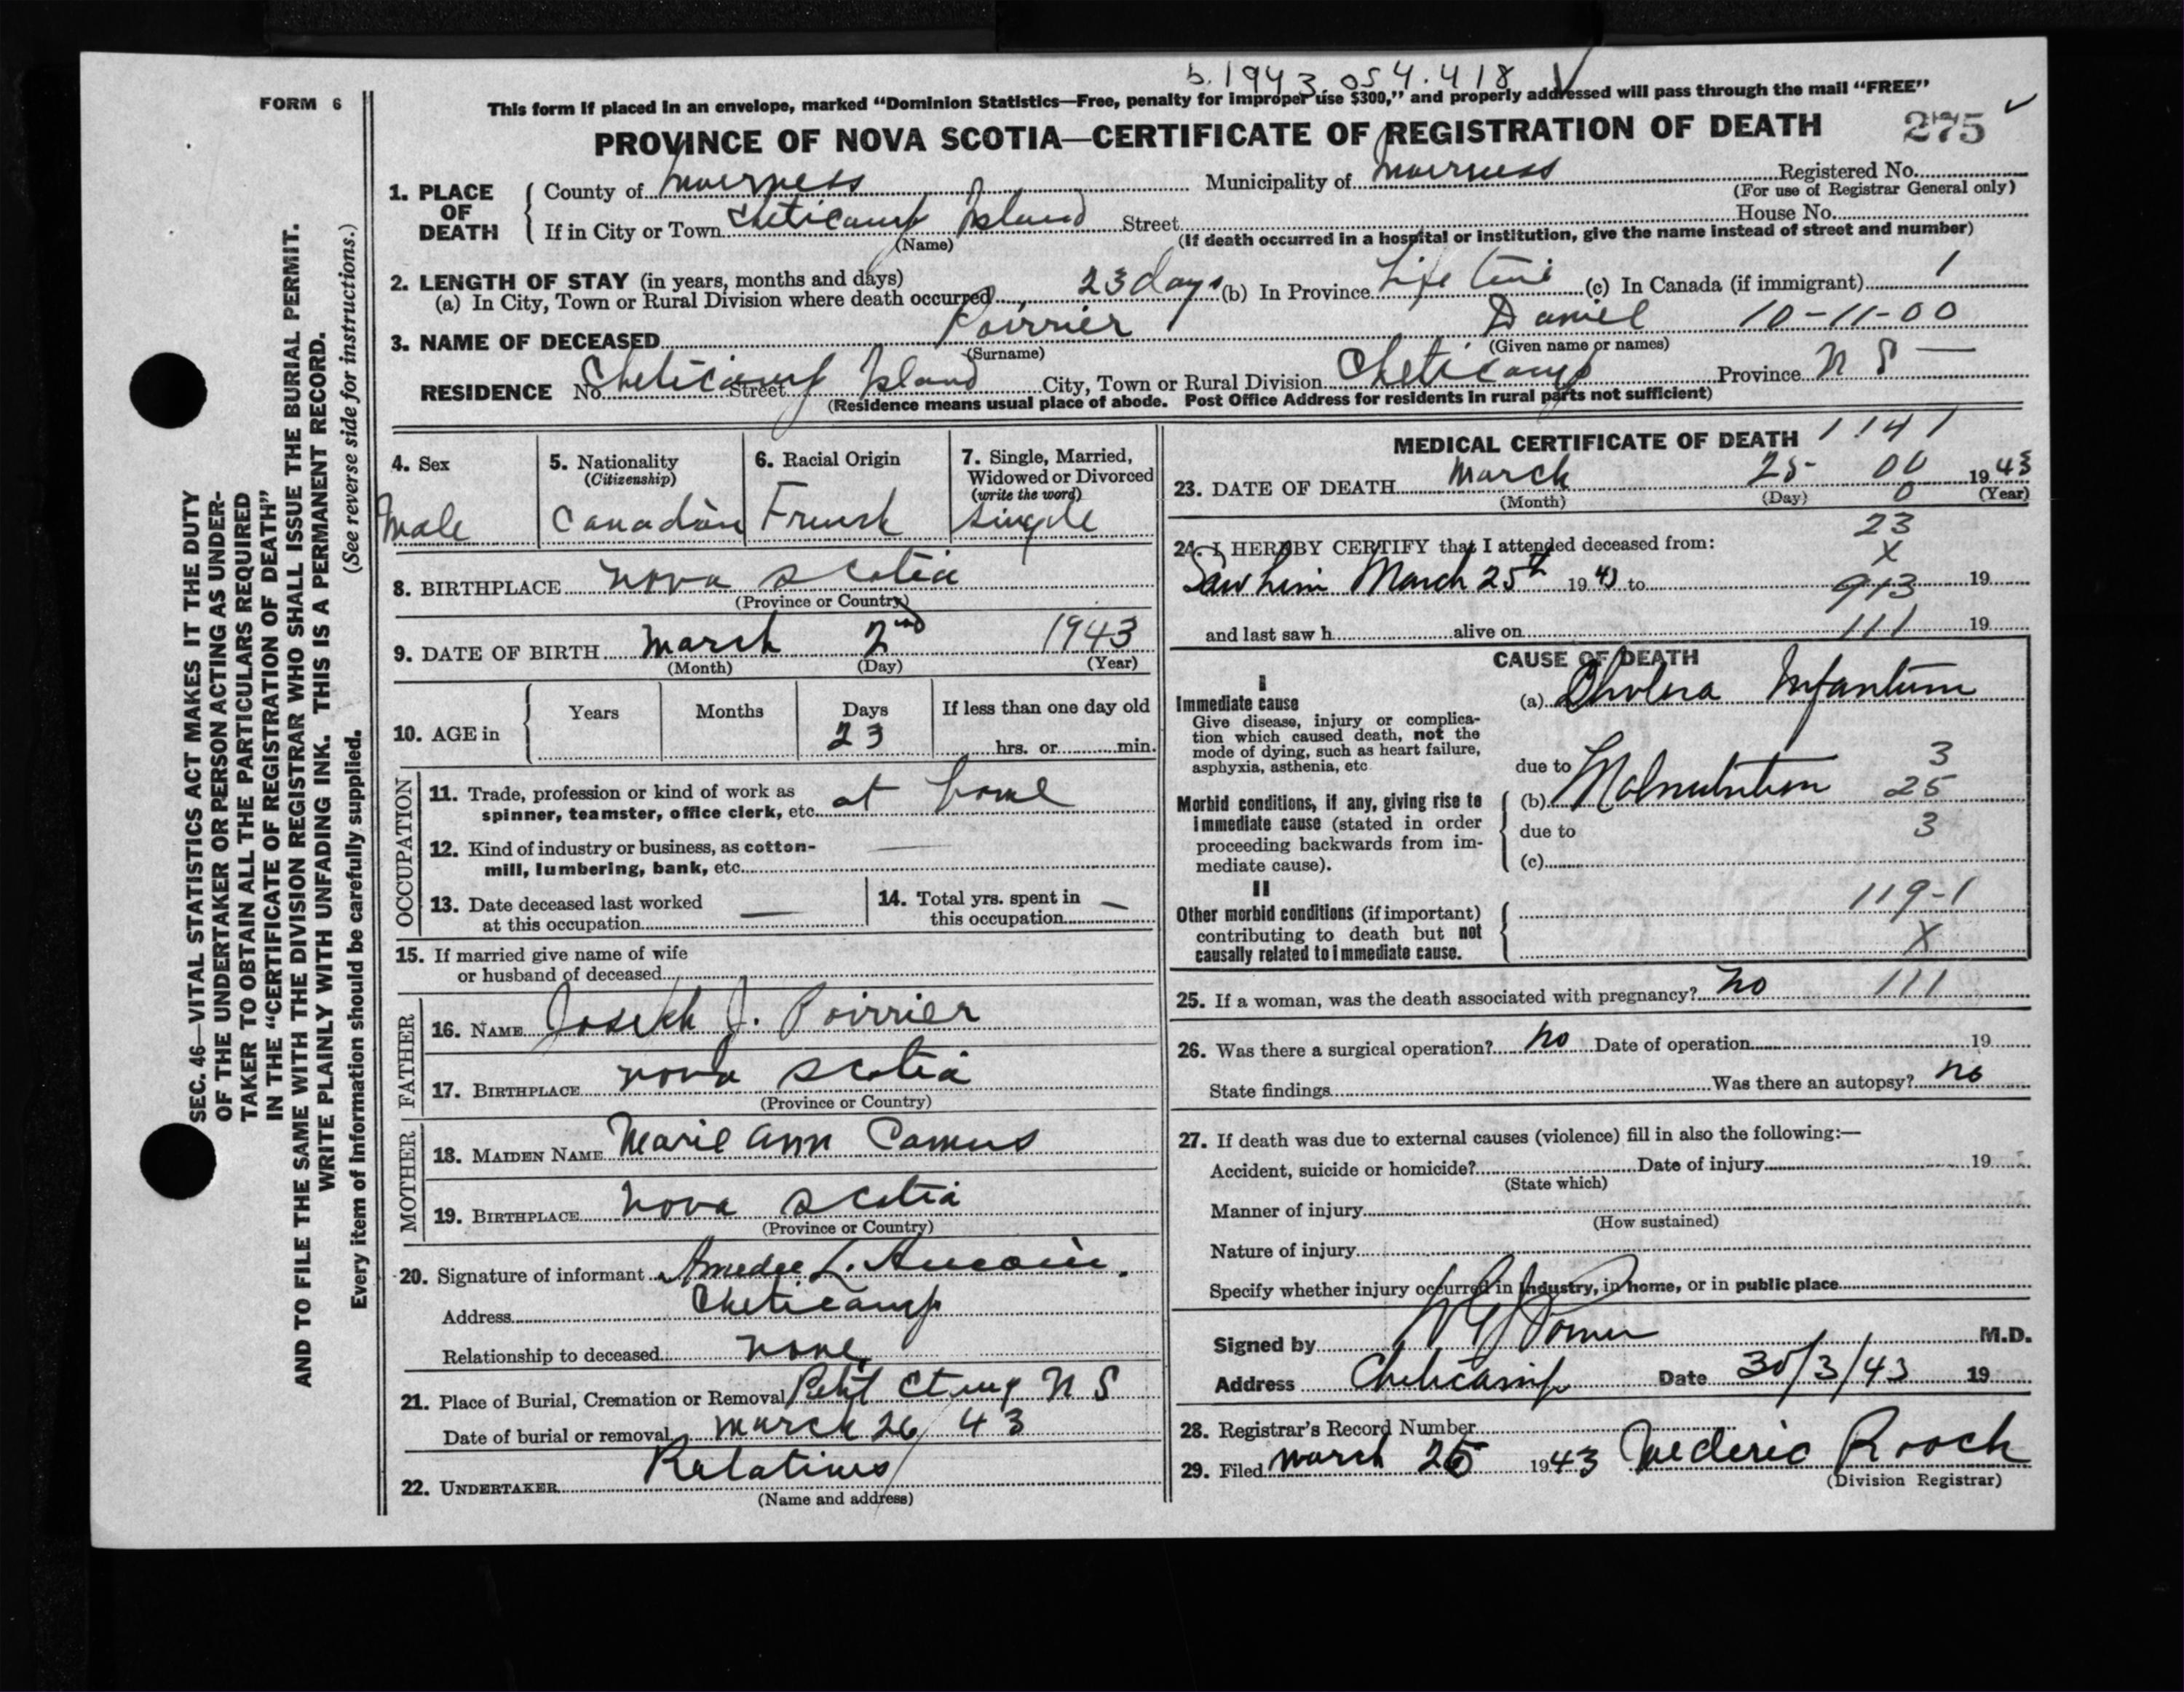 b. 1943 054.418 ✓
FORM 6
This form if placed in an envelope, marked “Dominion Statistics—Free, penalty for improper use $300,” and properly addressed will pass through the mail “FREE”
PROVINCE OF NOVA SCOTIA—CERTIFICATE OF REGISTRATION OF DEATH 275 ✓
1. PLACE OF DEATH
County of Inverness Municipality of Inverness Registered No.
(For use of Registrar General only)
If in City or Town Cheticamp Island Street House No.
(Name) (If death occurred in a hospital or institution, give the name instead of street and number)
2. LENGTH OF STAY (in years, months and days)
(a) In City, Town or Rural Division where death occurred 23 days (b) In Province Life time (c) In Canada (if immigrant) 1
3. NAME OF DECEASED Poirrier Daniel 10-11-00
(Surname) (Given name or names)
RESIDENCE No. Street Cheticamp Island City, Town or Rural Division Cheticamp Province N S —
(Residence means usual place of abode. Post Office Address for residents in rural parts not sufficient)
4. Sex
Male
5. Nationality
(Citizenship)
Canadian
6. Racial Origin
French
7. Single, Married,
Widowed or Divorced
(write the word)
Single
8. BIRTHPLACE Nova Scotia
(Province or Country)
9. DATE OF BIRTH March 2nd 1943
(Month) (Day) (Year)
10. AGE in
Years Months Days If less than one day old
23 hrs. or min.
OCCUPATION
11. Trade, profession or kind of work as
spinner, teamster, office clerk, etc. at home
12. Kind of industry or business, as cotton-
mill, lumbering, bank, etc. —
13. Date deceased last worked
at this occupation —
14. Total yrs. spent in
this occupation —
15. If married give name of wife
or husband of deceased
FATHER
16. NAME Joseph J. Poirrier
17. BIRTHPLACE Nova Scotia
(Province or Country)
MOTHER
18. MAIDEN NAME Marie Ann Camus
19. BIRTHPLACE Nova Scotia
(Province or Country)
20. Signature of informant Amedee L. Aucoin.
Address Cheticamp
Relationship to deceased None
21. Place of Burial, Cremation or Removal Petit N S
Date of burial or removal March 26/43
22. UNDERTAKER Relatives
(Name and address)
MEDICAL CERTIFICATE OF DEATH 1141
23. DATE OF DEATH March 25- 00 1943
(Month) (Day) 0 (Year)
23
24. I HEREBY CERTIFY that I attended deceased from:
X
Saw him March 25th 1943 to 913 19
and last saw h alive on 111 19
CAUSE OF DEATH
I
Immediate cause
Give disease, injury or complica-
tion which caused death, not the
mode of dying, such as heart failure,
asphyxia, asthenia, etc.
(a) Cholera Infantum
due to 3
Morbid conditions, if any, giving rise to
immediate cause (stated in order
proceeding backwards from im-
mediate cause).
(b) Malnutrition 25
due to 3
(c)
II
Other morbid conditions (if important)
contributing to death but not
causally related to immediate cause.
119-1
X
25. If a woman, was the death associated with pregnancy? No 111
26. Was there a surgical operation? No Date of operation 19
State findings Was there an autopsy? No
27. If death was due to external causes (violence) fill in also the following:—
Accident, suicide or homicide? Date of injury 19
(State which)
Manner of injury
(How sustained)
Nature of injury
Specify whether injury occurred in industry, in home, or in public place
Signed by M.D.
Address Cheticamp Date 30/3/43 19
28. Registrar's Record Number
29. Filed March 26 1943 Mederic Roach
(Division Registrar)
SEC. 46—VITAL STATISTICS ACT MAKES IT THE DUTY
OF THE UNDERTAKER OR PERSON ACTING AS UNDER-
TAKER TO OBTAIN ALL THE PARTICULARS REQUIRED
IN THE “CERTIFICATE OF REGISTRATION OF DEATH”
AND TO FILE THE SAME WITH THE DIVISION REGISTRAR WHO SHALL ISSUE THE BURIAL PERMIT.
WRITE PLAINLY WITH UNFADING INK. THIS IS A PERMANENT RECORD.
Every item of information should be carefully supplied. (See reverse side for instructions.)